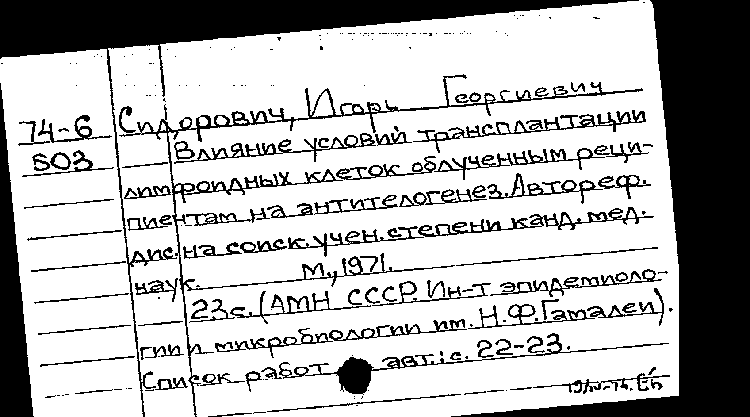 74-6 Сидорович, Игорь Георгиевич
503 Влияние условий трансплантации
лимфоидных клеток облученным реци-
пиентам на антителогенез. Автореф.
дис. на соиск. учен. степени канд. мед.
наук. М., 1971.
23 с. (АМН СССР. Ин-т эпидемиоло-
гии и микробиологии им. Н.Ф.Гамалеи).
Список работ авт.: с. 22-23.